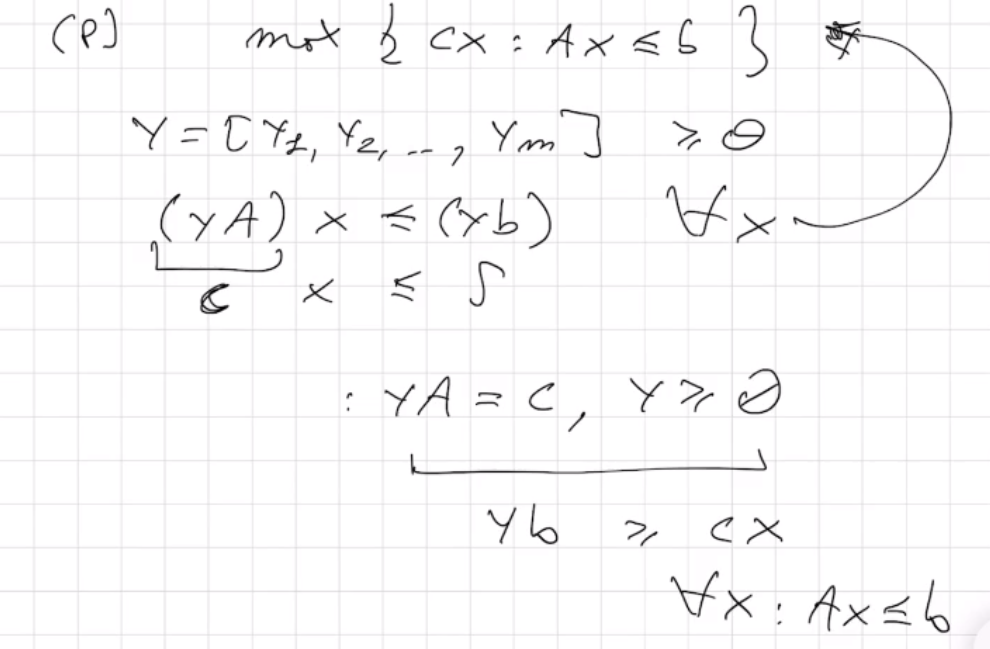 (P) max { cx : Ax ≤ b }
Y = [ Y1, Y2, ..., Ym ] ≥ 0
(yA) x ≤ (yb) ∀x
c x ≤ δ
: yA = c, y ≥ 0
yb ≥ cx
∀x : Ax ≤ b